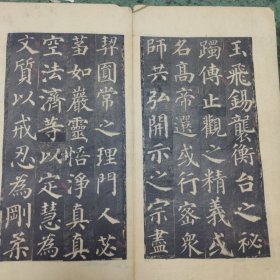 玉飛錫襲衡台之秘
躅傳止觀之精義或
名高帝選或行密衆
師共弘開示之宗盡
契圓常之理門人苾
芻如巖靈悟淨真真
空法濟等以定慧為
文質以戒忍為剛柔